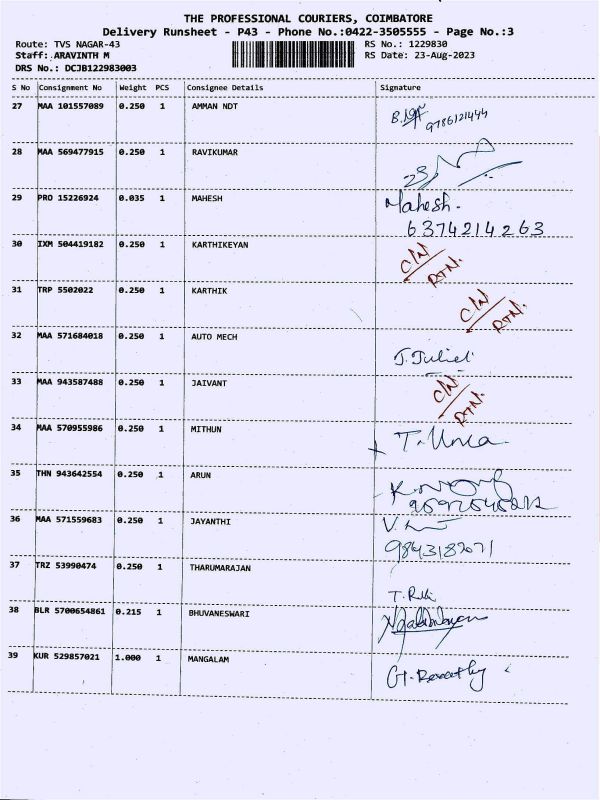 THE PROFESSIONAL COURIERS, COIMBATORE
Delivery Runsheet - P43 - Phone No.:0422-3505555 - Page No.:3
Route: TVS NAGAR-43 RS No.: 1229830
Staff: ARAVINTH M RS Date: 23-Aug-2023
DRS No.: DCJB122983003
S No Consignment No Weight PCS Consignee Details Signature
27 MAA 101557089 0.250 1 AMMAN NDT
9786121444
28 MAA 569477915 0.250 1 RAVIKUMAR
29 PRO 15226924 0.035 1 MAHESH Mahesh.
6374214263
30 IXM 504419182 0.250 1 KARTHIKEYAN C/N
RTN.
31 TRP 5502022 0.250 1 KARTHIK C/N
RTN.
32 MAA 571684018 0.250 1 AUTO MECH
J. Juliet
33 MAA 943587488 0.250 1 JAIVANT C/N
RTN.
34 MAA 570955986 0.250 1 MITHUN T. Uma
35 THN 943642554 0.250 1 ARUN
36 MAA 571559683 0.250 1 JAYANTHI
37 TRZ 53990474 0.250 1 THARUMARAJAN
38 BLR 5700654861 0.215 1 BHUVANESWARI
39 KUR 529857021 1.000 1 MANGALAM